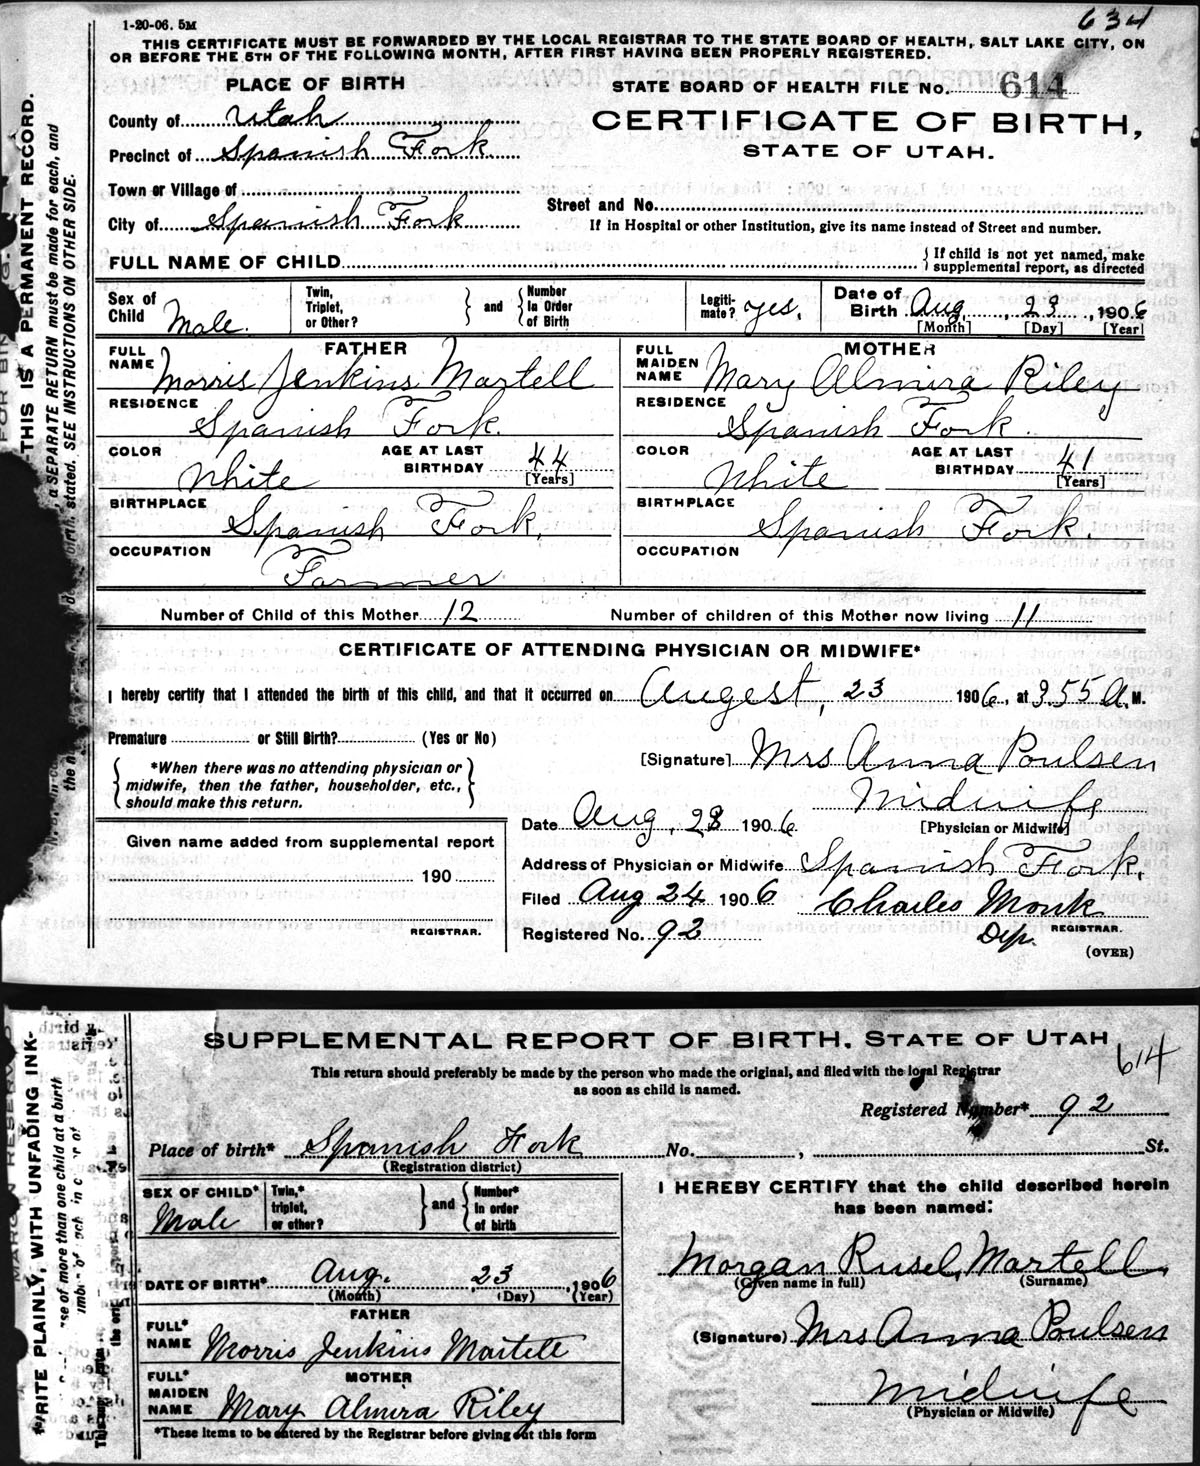 1-20-06. 5M
634
THIS CERTIFICATE MUST BE FORWARDED BY THE LOCAL REGISTRAR TO THE STATE BOARD OF HEALTH, SALT LAKE CITY, ON
OR BEFORE THE 5TH OF THE FOLLOWING MONTH, AFTER FIRST HAVING BEEN PROPERLY REGISTERED.
PLACE OF BIRTH
STATE BOARD OF HEALTH FILE No. 614
County of Utah
CERTIFICATE OF BIRTH,
Precinct of Spanish Fork
STATE OF UTAH.
Town or Village of
Street and No.
City of Spanish Fork
If in Hospital or other Institution, give its name instead of Street and number.
FULL NAME OF CHILD
{ If child is not yet named, make
supplemental report, as directed
Sex of Child Male.
Twin, Triplet, or Other? } and { Number In Order of Birth
Legiti-mate? yes.
Date of Birth Aug, 23, 1906
[Month] [Day] [Year]
FATHER
FULL NAME Morris Jenkins Martell
MOTHER
FULL MAIDEN NAME Mary Almira Riley
RESIDENCE Spanish Fork.
RESIDENCE Spanish Fork.
COLOR White AGE AT LAST BIRTHDAY 44 [Years]
COLOR White AGE AT LAST BIRTHDAY 41 [Years]
BIRTHPLACE Spanish Fork.
BIRTHPLACE Spanish Fork.
OCCUPATION Farmer
OCCUPATION
Number of Child of this Mother 12 Number of children of this Mother now living 11
CERTIFICATE OF ATTENDING PHYSICIAN OR MIDWIFE*
I hereby certify that I attended the birth of this child, and that it occurred on Augest, 23 1906, at 355 A.M.
Premature or Still Birth? (Yes or No)
[Signature] Mrs Anna Poulsen
{ *When there was no attending physician or
midwife, then the father, householder, etc.,
should make this return. }
Midwife
[Physician or Midwife]
Date Aug, 23 1906
Given name added from supplemental report
190
REGISTRAR.
Address of Physician or Midwife Spanish Fork.
Filed Aug 24 1906 Charles Monk
Dep. REGISTRAR.
Registered No. 92
(OVER)
THIS IS A PERMANENT RECORD.
a SEPARATE RETURN must be made for each, and
stated. SEE INSTRUCTIONS ON OTHER SIDE.
SUPPLEMENTAL REPORT OF BIRTH, STATE OF UTAH
614
This return should preferably be made by the person who made the original, and filed with the local Registrar
as soon as child is named.
Registered Number* 92
Place of birth* Spanish Fork No. , St.
(Registration district)
SEX OF CHILD* Male
Twin,* triplet, or other? } and { Number* in order of birth
I HEREBY CERTIFY that the child described herein
has been named:
DATE OF BIRTH* Aug. 23, 1906
(Month) (Day) (Year)
Morgan Rusel, Martell,
(Given name in full) (Surname)
FATHER
FULL* NAME Morris Jenkins Martell
(Signature) Mrs Anna Poulsen
MOTHER
FULL* MAIDEN NAME Mary Almira Riley
Midwife
(Physician or Midwife)
*These items to be entered by the Registrar before giving out this form
WRITE PLAINLY, WITH UNFADING INK-
se of more than one child at a birth